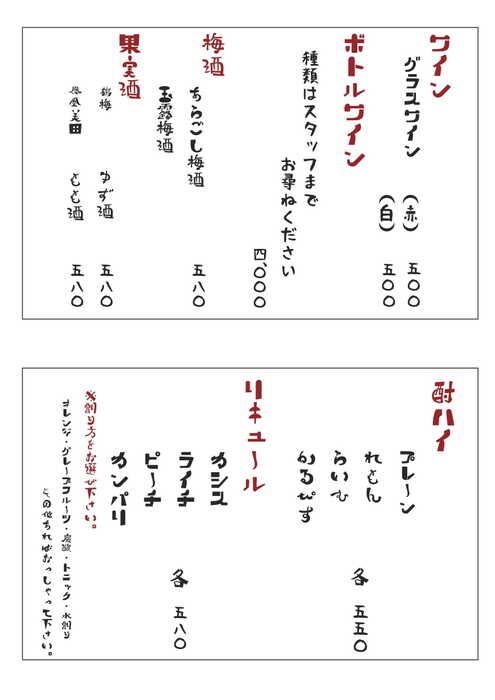 ワイン
グラスワイン (赤) 五〇〇
(白) 五〇〇
ボトルワイン
種類はスタッフまで
お尋ねください
四、〇〇〇
梅酒
あらごし梅酒 五八〇
玉露梅酒
果実酒
鶴梅 ゆず酒 五八〇
鳳凰美田 もも酒 五八〇
酎ハイ
プレーン
れもん
らいむ 各 五五〇
かるぴす
リキュール
カシス
ライチ 各 五八〇
ピーチ
カンパリ
※割り方をお選び下さい。
オレンジ・グレープフルーツ・炭酸・トニック・水割り
その他あればおっしゃって下さい。